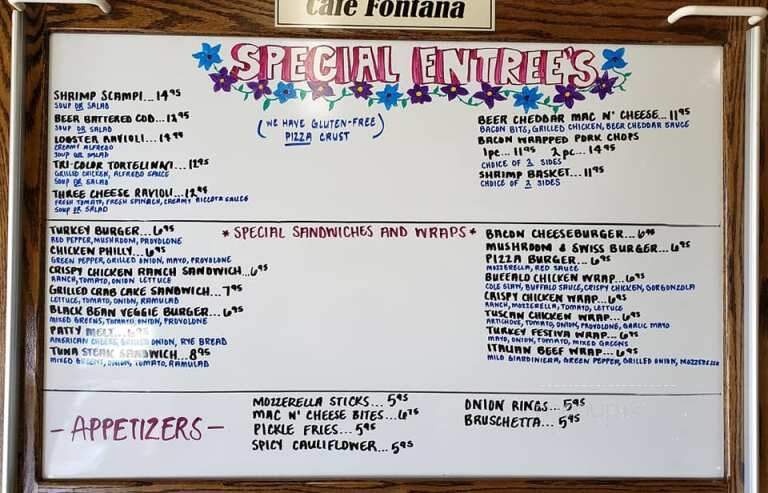 Cafe Fontana
SPECIAL ENTREE'S
(WE HAVE GLUTEN-FREE
PIZZA CRUST)
SHRIMP SCAMPI... 14.95
SOUP OR SALAD
BEER BATTERED COD... 12.95
SOUP OR SALAD
LOBSTER RAVIOLI...
CREAMY ALFREDO
SOUP OR SALAD
TRI-COLOR TORTELINNI... 12.95
GRILLED CHICKEN, ALFREDO SAUCE
SOUP OR SALAD
THREE CHEESE RAVIOLI... 12.95
FRESH TOMATO, FRESH SPINACH, CREAMY RICCOTA SAUCE
SOUP OR SALAD
BEER CHEDDAR MAC N' CHEESE... 11.95
BACON BITS, GRILLED CHICKEN, BEER CHEDDAR SAUCE
BACON WRAPPED PORK CHOPS
1pc... 11.95 2pc... 14.95
CHOICE OF 2 SIDES
SHRIMP BASKET... 11.95
CHOICE OF 2 SIDES
* SPECIAL SANDWICHES AND WRAPS *
TURKEY BURGER... 6.95
RED PEPPER, MUSHROOM, PROVOLONE
CHICKEN PHILLY... 6.95
GREEN PEPPER, GRILLED ONION, MAYO, PROVOLONE
CRISPY CHICKEN RANCH SANDWICH... 6.95
RANCH, TOMATO, ONION LETTUCE
GRILLED CRAB CAKE SANDWICH... 7.95
LETTUCE, TOMATO, ONION, RAMULAD
BLACK BEAN VEGGIE BURGER... 6.95
MIXED GREENS, TOMATO, ONION, PROVOLONE
PATTY MELT... 6.95
AMERICAN CHEESE, GRILLED ONION, RYE BREAD
TUNA STEAK SANDWICH... 8.95
MIXED GREENS, ONION, TOMATO, RAMULAD
BACON CHEESEBURGER... 6.95
MUSHROOM & SWISS BURGER... 6.95
PIZZA BURGER... 6.95
MOZZERELLA, RED SAUCE
BUFFALO CHICKEN WRAP... 6.95
COLE SLAW, BUFFALO SAUCE, CRISPY CHICKEN, GORGONZOLA
CRISPY CHICKEN WRAP... 6.95
RANCH, MOZZERELLA, TOMATO, LETTUCE
TUSCAN CHICKEN WRAP... 6.95
ARTICHOKE, TOMATO, ONION, PROVOLONE, GARLIC MAYO
TURKEY FESTIVA WRAP... 6.95
MAYO, ONION, TOMATO, MIXED GREENS
ITALIAN BEEF WRAP... 6.95
MILD GIARDINIERA, GREEN PEPPER, GRILLED ONION, MOZZERELLA
- APPETIZERS -
MOZZERELLA STICKS... 5.95
MAC N' CHEESE BITES... 6.75
PICKLE FRIES... 5.95
SPICY CAULIFLOWER... 5.95
ONION RINGS... 5.95
BRUSCHETTA... 5.95